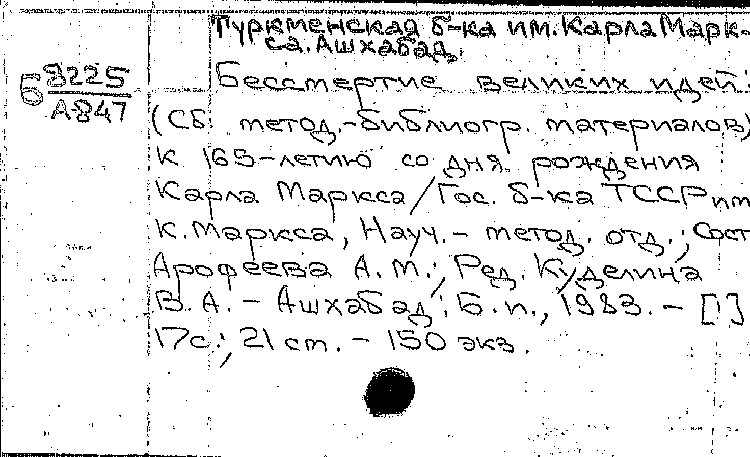 Туркменская б-ка им. Карла Марк-
са. Ашхабад.
Б 8225
А-847
Бессмертие великих идей:
(Сб. метод.-библиогр. материалов)
к 165-летию со дня рождения
Карла Маркса / Гос. б-ка ТССР им
К. Маркса, Науч.- метод. отд.; Сост
Арофеева А. М.; Ред. Куделина
В. А. - Ашхабад: Б. и., 1983. - [1]
17с.; 21 ст. - 150 экз.